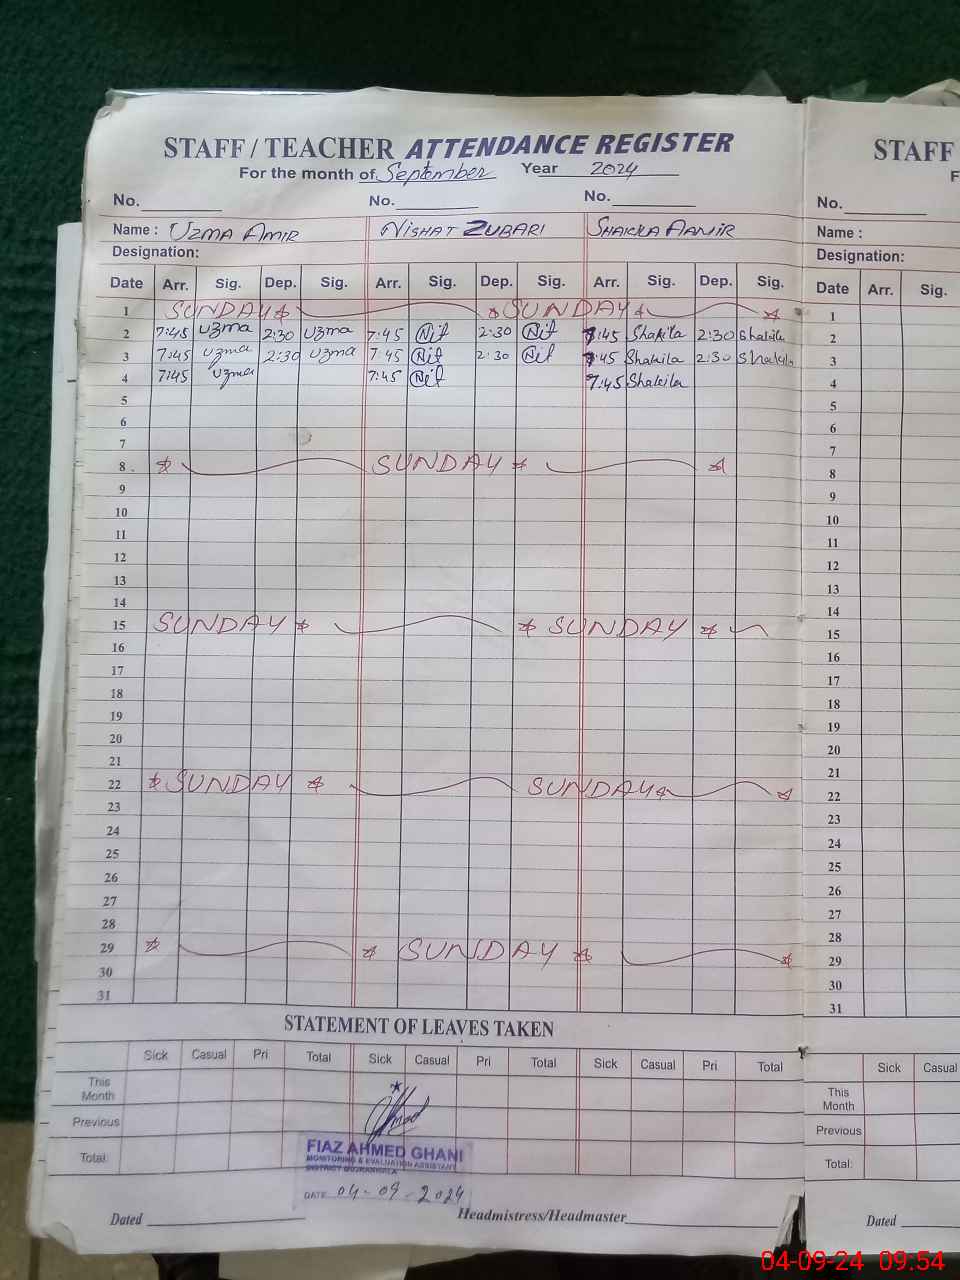 STAFF / TEACHER ATTENDANCE REGISTER
For the month of September Year 2024
No. No. No.
Name : UZMA AMIR NISHAT ZUBARI SHAKILA AAMIR
Designation:
Date Arr. Sig. Dep. Sig. Arr. Sig. Dep. Sig. Arr. Sig. Dep. Sig.
1 SUNDAY SUNDAY
2 7:45 uzma 2:30 uzma 7:45 2:30 7:45 Shakila 2:30 Shakila
3 7:45 uzma 2:30 uzma 7:45 2:30 7:45 Shakila 2:30 Shakila
4 7:45 uzma 7:45 7:45 Shakila
5
6
7
8 SUNDAY
9
10
11
12
13
14
15 SUNDAY SUNDAY
16
17
18
19
20
21
22 SUNDAY SUNDAY
23
24
25
26
27
28
29 SUNDAY
30
31
STATEMENT OF LEAVES TAKEN
Sick Casual Pri Total Sick Casual Pri Total Sick Casual Pri Total
This Month
Previous
Total:
FIAZ AHMED GHANI
MONITORING & EVALUATION ASSISTANT
DISTRICT GUJRANWALA
DATE 04-09-2024
Dated Headmistress/Headmaster
STAFF
F
No.
Name :
Designation:
Date Arr. Sig.
1
2
3
4
5
6
7
8
9
10
11
12
13
14
15
16
17
18
19
20
21
22
23
24
25
26
27
28
29
30
31
Sick Casual
This Month
Previous
Total:
Dated
04-09-24 09:54